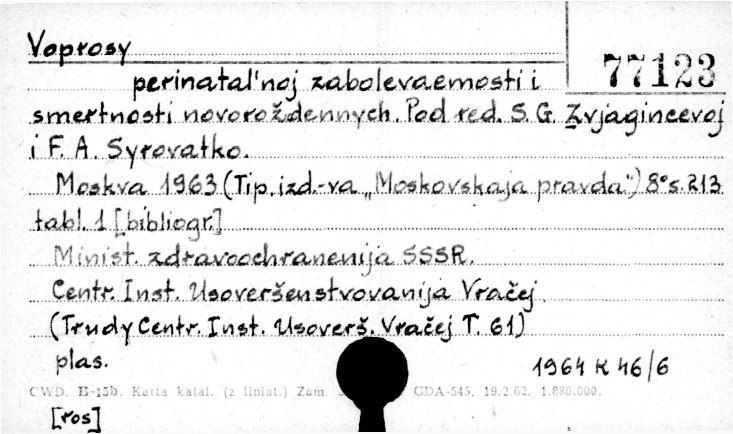 Voprosy
77123
perinatal'noj zabolevaemosti i
smertnosti novoroždennych. Pod red. S. G. Zvjagincevoj
i F. A. Syrovatko.
Moskva 1963 (Tip. izd.-va „Moskovskaja pravda") 8° s. 213
tabl. 1 [bibliogr.]
Minist. zdravoochranenija SSSR.
Centr. Inst. Usoveršenstvovanija Vračej
(Trudy Centr. Inst. Usoverš. Vračej T. 61)
plas.
1964 K 46/6
CWD. E-15b. Karta katal. (z liniat.) Zam. GDA-545, 19.2.62. 1.880.000.
[ros]